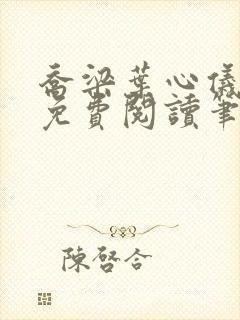 喬梁葉心儀
免費閱讀筆
陳啓合